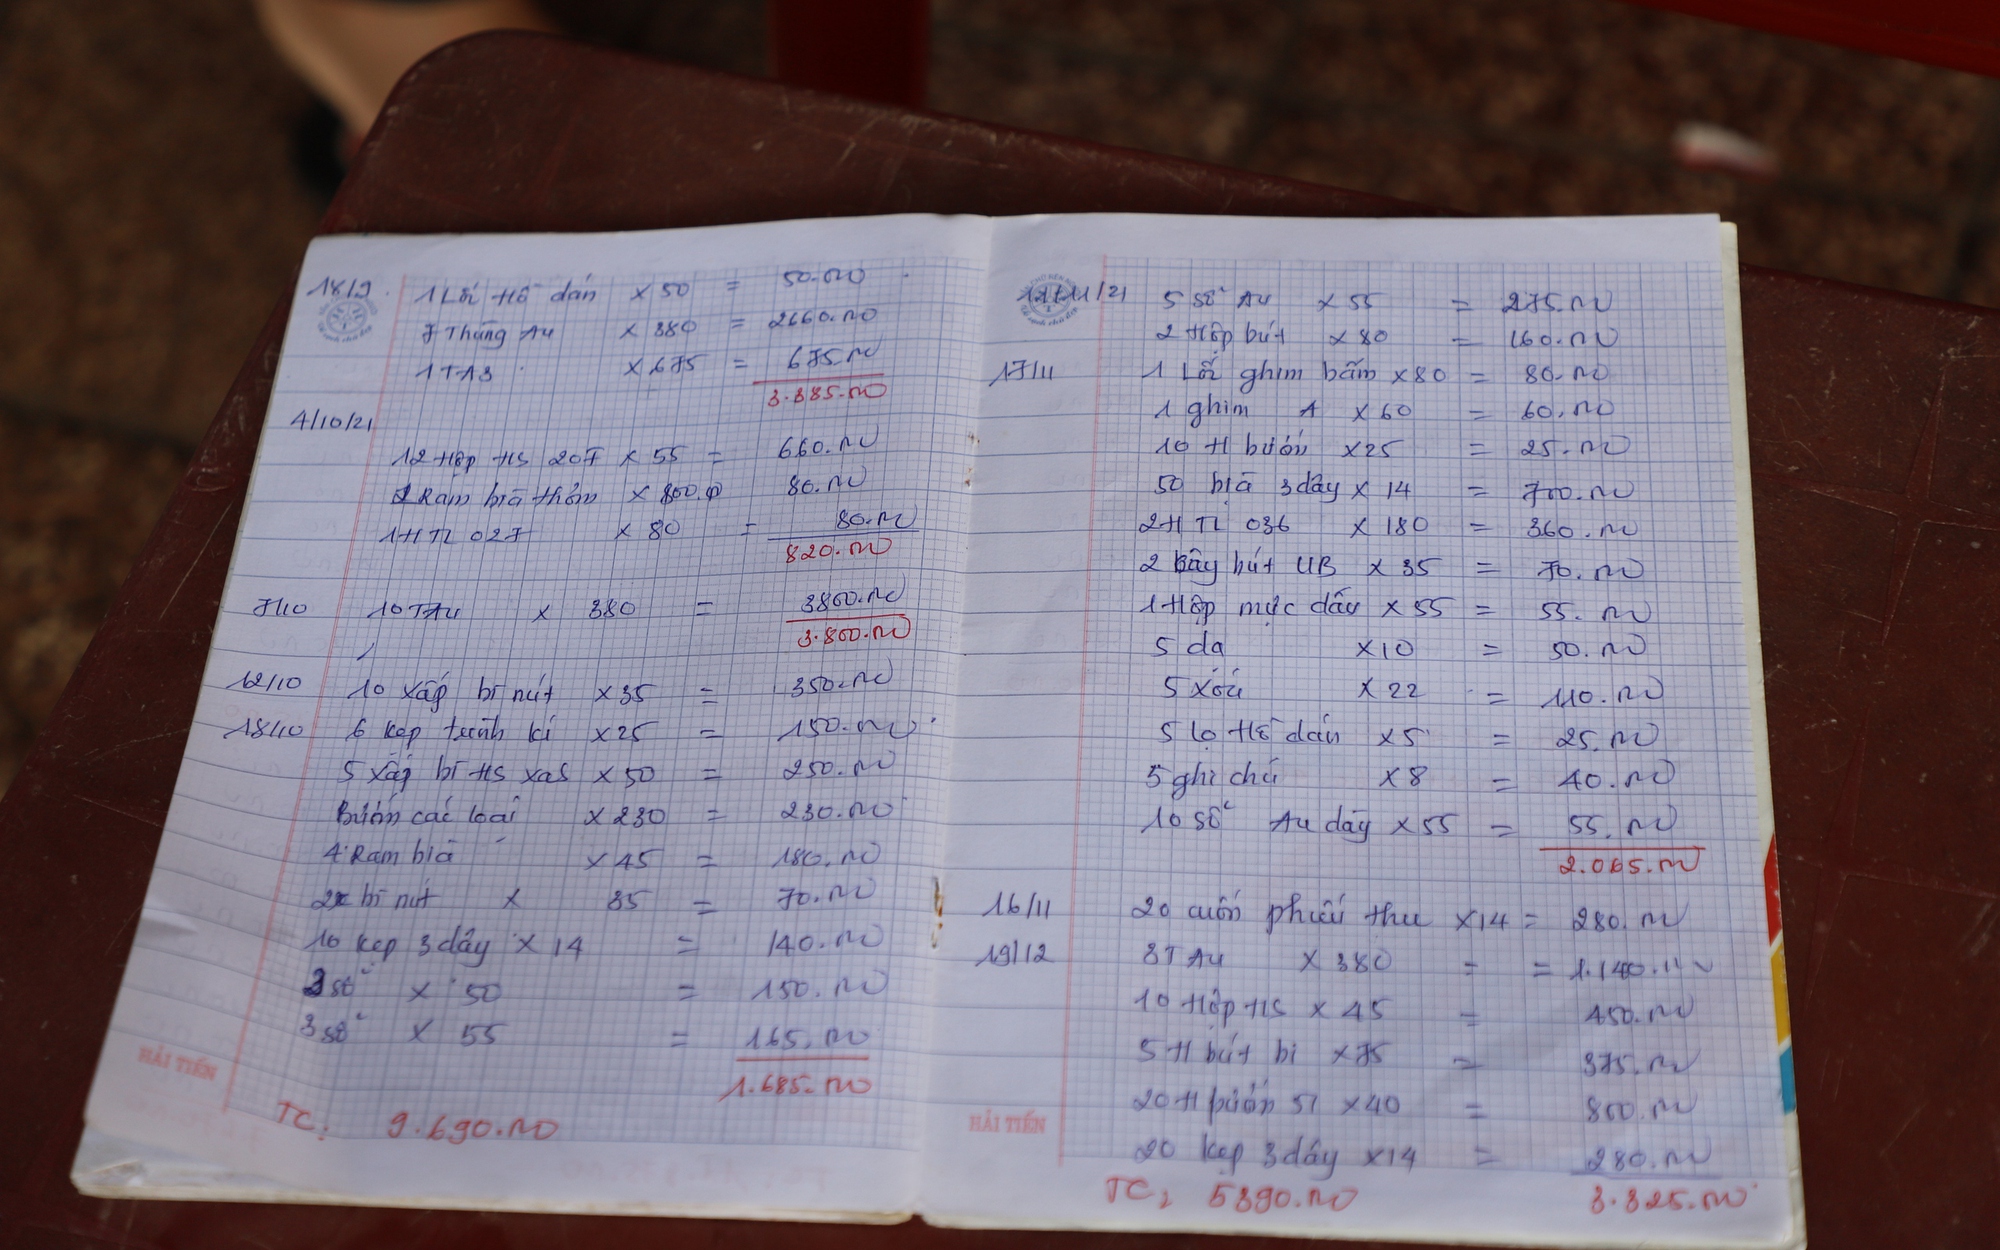 18/9 1 Lố Hồ dán x 50 = 50.000
7 Thùng A4 x 380 = 2660.000
1 TA3 x 675 = 675.000
3.385.000
4/10/21
12 Hộp HS 207 x 55 = 660.000
Ram bìa thơm x 80.000
1 H TL 027 x 80 = 80.000
820.000
7/10 10 TA4 x 380 = 3800.000
3.800.000
12/10 10 xấp bì nút x 35 = 350.000
18/10 6 kẹp trình kí x 25 = 150.000
5 xấp bì HS x 50 = 250.000
Bướm các loại x 230 = 230.000
4 Ram bìa x 45 = 180.000
2x bì nút x 35 = 70.000
10 kẹp 3 dây x 14 = 140.000
3 sổ x 50 = 150.000
3 sổ x 55 = 165.000
1.685.000
HẢI TIẾN
TC: 9.690.000
12/11/21 5 sổ A4 x 55 = 275.000
2 Hộp bút x 80 = 160.000
17/11 1 Lố ghim bấm x 80 = 80.000
1 ghim A x 60 = 60.000
10 H bướm x 25 = 25.000
50 bìa 3 dây x 14 = 700.000
2 H TL 036 x 180 = 360.000
2 bút UB x 35 = 70.000
1 Hộp mực dấu x 55 = 55.000
5 dạ x 10 = 50.000
5 xóa x 22 = 110.000
5 lọ Hồ dán x 5 = 25.000
5 ghi chú x 8 = 40.000
10 sổ A4 dày x 55 = 55.000
2.065.000
16/11 20 cuốn phiếu thu x 14 = 280.000
19/12 3 T A4 x 380 = = 1.140.000
10 Hộp HS x 45 = 450.000
5 H bút bi x 75 = 375.000
20 H bướm 51 x 40 = 800.000
20 kẹp 3 dây x 14 = 280.000
HẢI TIẾN
TC: 5390.000 3.325.000